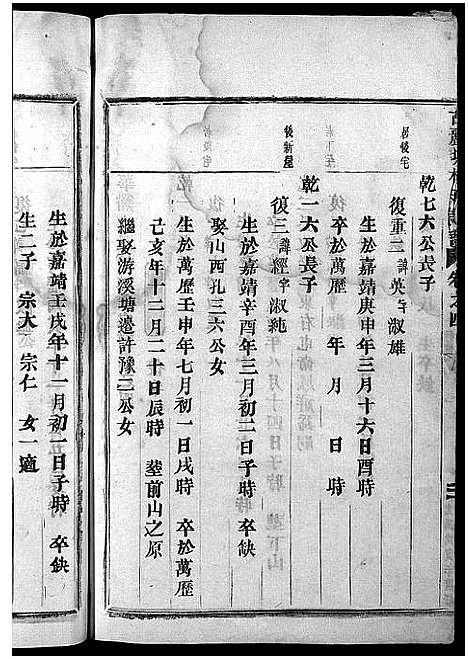 卷之四
乾七六公長子
後宅
復重二諱英字淑雄
生於嘉靖庚申年三月十六日酉時
卒於萬歷 年 月 日 時
乾一六公長子
後新屋
復三諱經字淑純
生於嘉靖辛酉年三月初二日子時 卒缺
娶山西孔三六公女
生於萬歷壬申年七月初一日戌時 卒於萬歷
己亥年十二月二十日辰時 塟前山之原
繼娶游溪塘邊許豫三公女
生於嘉靖壬戌年十一月初二日子時 卒缺
生二子 宗大 宗仁 女一適